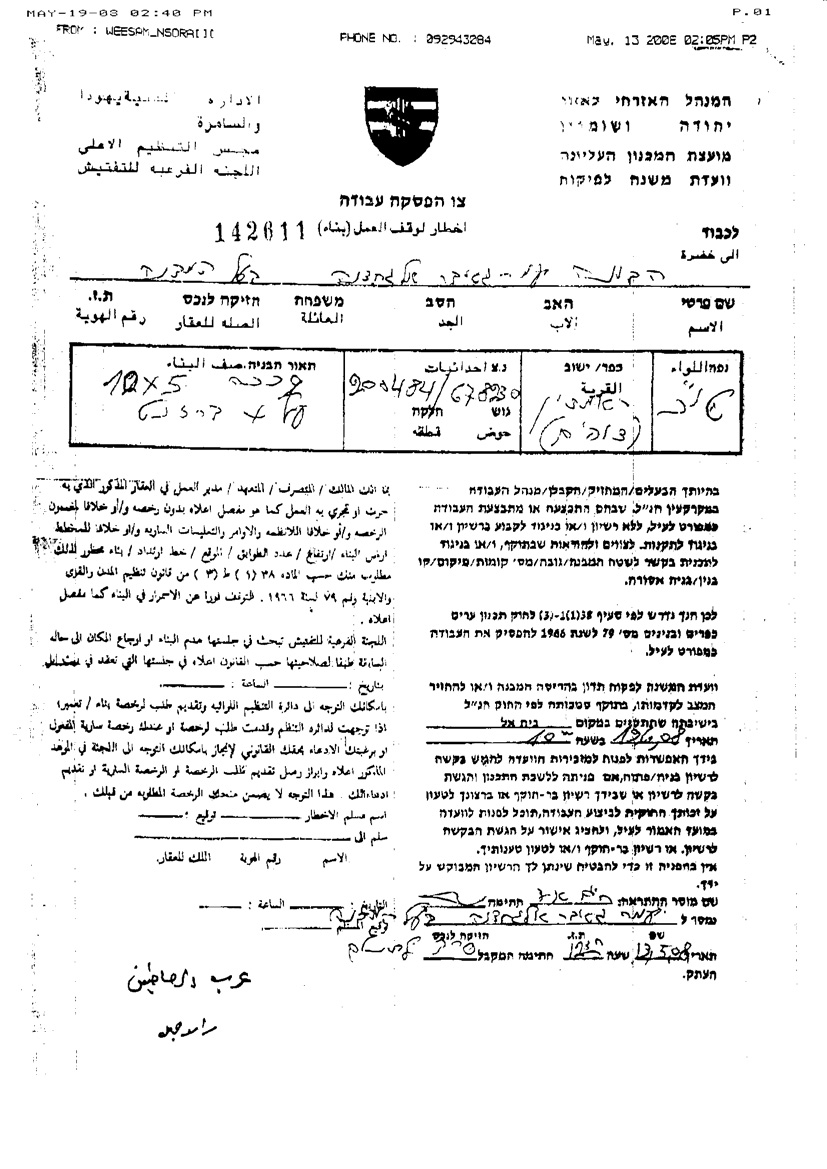 MAY-19-08 02:40 PM P.01
FROM : WEESAM_NSORA PHONE NO. : 092943284 May. 13 2008 02:05PM P2
המנהל האזרחי לאזור
יהודה ושומרון
מועצת התכנון העליונה
וועדת משנה לפיקוח
الادارة المدنية يهودا
والسامرة
مجلس التنظيم الاعلى
اللجنه الفرعيه للتفتيش
צו הפסקת עבודה
اخطار لوقف العمل (بناء) 142611
לכבוד
الى حضرة
שם פרטי האב הסב משפחה חזיקה לנכס ת.ז.
الاسم الاب الجد العائلة الصله للعقار رقم الهوية
נפה اللواء כפר/ ישוב القرية נ.צ احداثيات תאור הבניה. صف البناء
200484/678230 12x5
גוש חלקה
حوض قطعه
בהיותך הבעלים/המחזיק/הקבלן/מנהל העבודה
במקרקעין הנ״ל, שבהם התבצעה או מתבצעת העבודה
כמפורט לעיל, ללא רשיון ו/או בניגוד לקבוע ברשיון ו/או
בניגוד לתקנות. לצווים ולהוראות שבתוקף, ו/או בניגוד
לתכנית בקשר לשטח המבנה/גובה/מס׳ קומות/מיקום/קו
בנין/בניה אסורה.
לכן הנך נדרש לפי סעיף 38(1)-(3) לחוק תכנון ערים
כפרים ובנינים מס׳ 79 לשנת 1966 להפסיק את העבודה
כמפורט לעיל.
וועדת המשנה לפקוח תדון בהריסת המבנה ו/או להחזיר
המצב לקדמותו, בתוקף סמכותה לפי החוק הנ״ל
בישיבתה שתתקיים במקום בית אל
תאריך 12.6.08 בשעה 10
בידך האפשרות לפנות למזכירות הוועדה להגיש בקשה
לרשיון בניה/פתוח, אם פניתה ללשכת התכנון והגשת
בקשה לרשיון או שבידך רשיון בר-תוקף או ברצונך לטעון
על זכותך החוקית לביצוע העבודה, תוכל לפנות לוועדה
במועד האמור לעיל, ולהציג אישור על הגשת הבקשה
לרשיון. או רשיון בר-תוקף ו/או לטעון טענותיך.
אין בהפניה זו כדי להבטיח שינתן לך הרשיון המבוקש על
ידך.
שם מוסר ההתראה: חתימה
נמסר ל
שם ת.ז. חזיקה לנכס
תאריך 13.5.08 שעה חתימת המקבל
העתק.
بما انك المالك/ المتصرف/ المتعهد/ مدير العمل في العقار المذكور الذي به
جرت او تجري به العمل كما هو مفصل اعلاه بدون رخصه و/أو خلافا لمضمون
الرخصه و/أو خلافا للانظمه والاوامر والتعليمات الساريه و/او خلافا للمخطط
ارض البناء/ارتفاع/ عدد الطوابق/ الموقع/ خط ارتداد/ بناء محظور لذلك
مطلوب منك حسب الماده ٣٨ (١) ط (٣) من قانون تنظيم المدن والقرى
والابنية رقم ٧٩ لسنة ١٩٦٦. التوقف فورا عن الاستمرار في البناء كما مفصل
اعلاه.
اللجنة الفرعية للتفتيش تبحث في جلستها هدم البناء او ارجاع المكان الى حاله
السابقة طبقا لصلاحيتها حسب القانون اعلاه في جلستها التي تعقد في
بتاريخ: الساعة:
بامكانك التوجه الى دائرة التنظيم اللوائيه وتقديم طلب لرخصة بناء/ تعمير؛
اذا توجهت لدائره التنظم وقدمت طلب لرخصة او عندك رخصة سارية المفعول
او برغبتك الادعاء بحقك القانوني لإنجاز بامكانك التوجه الى اللجنة في الموعد
المذكور اعلاه وابراز وصل تقديم طلب الرخصة لو الرخصة السارية او تقديم
ادعاءاتك. هذا التوجه لا يضمن منحك الرخصة المطلوبه من قبلك.
اسم مسلم الاخطار توقيع:
سلم الى
الاسم رقم الهوية المالك للعقار.
التاريخ: الساعة:
توقيع المستلم
عرب